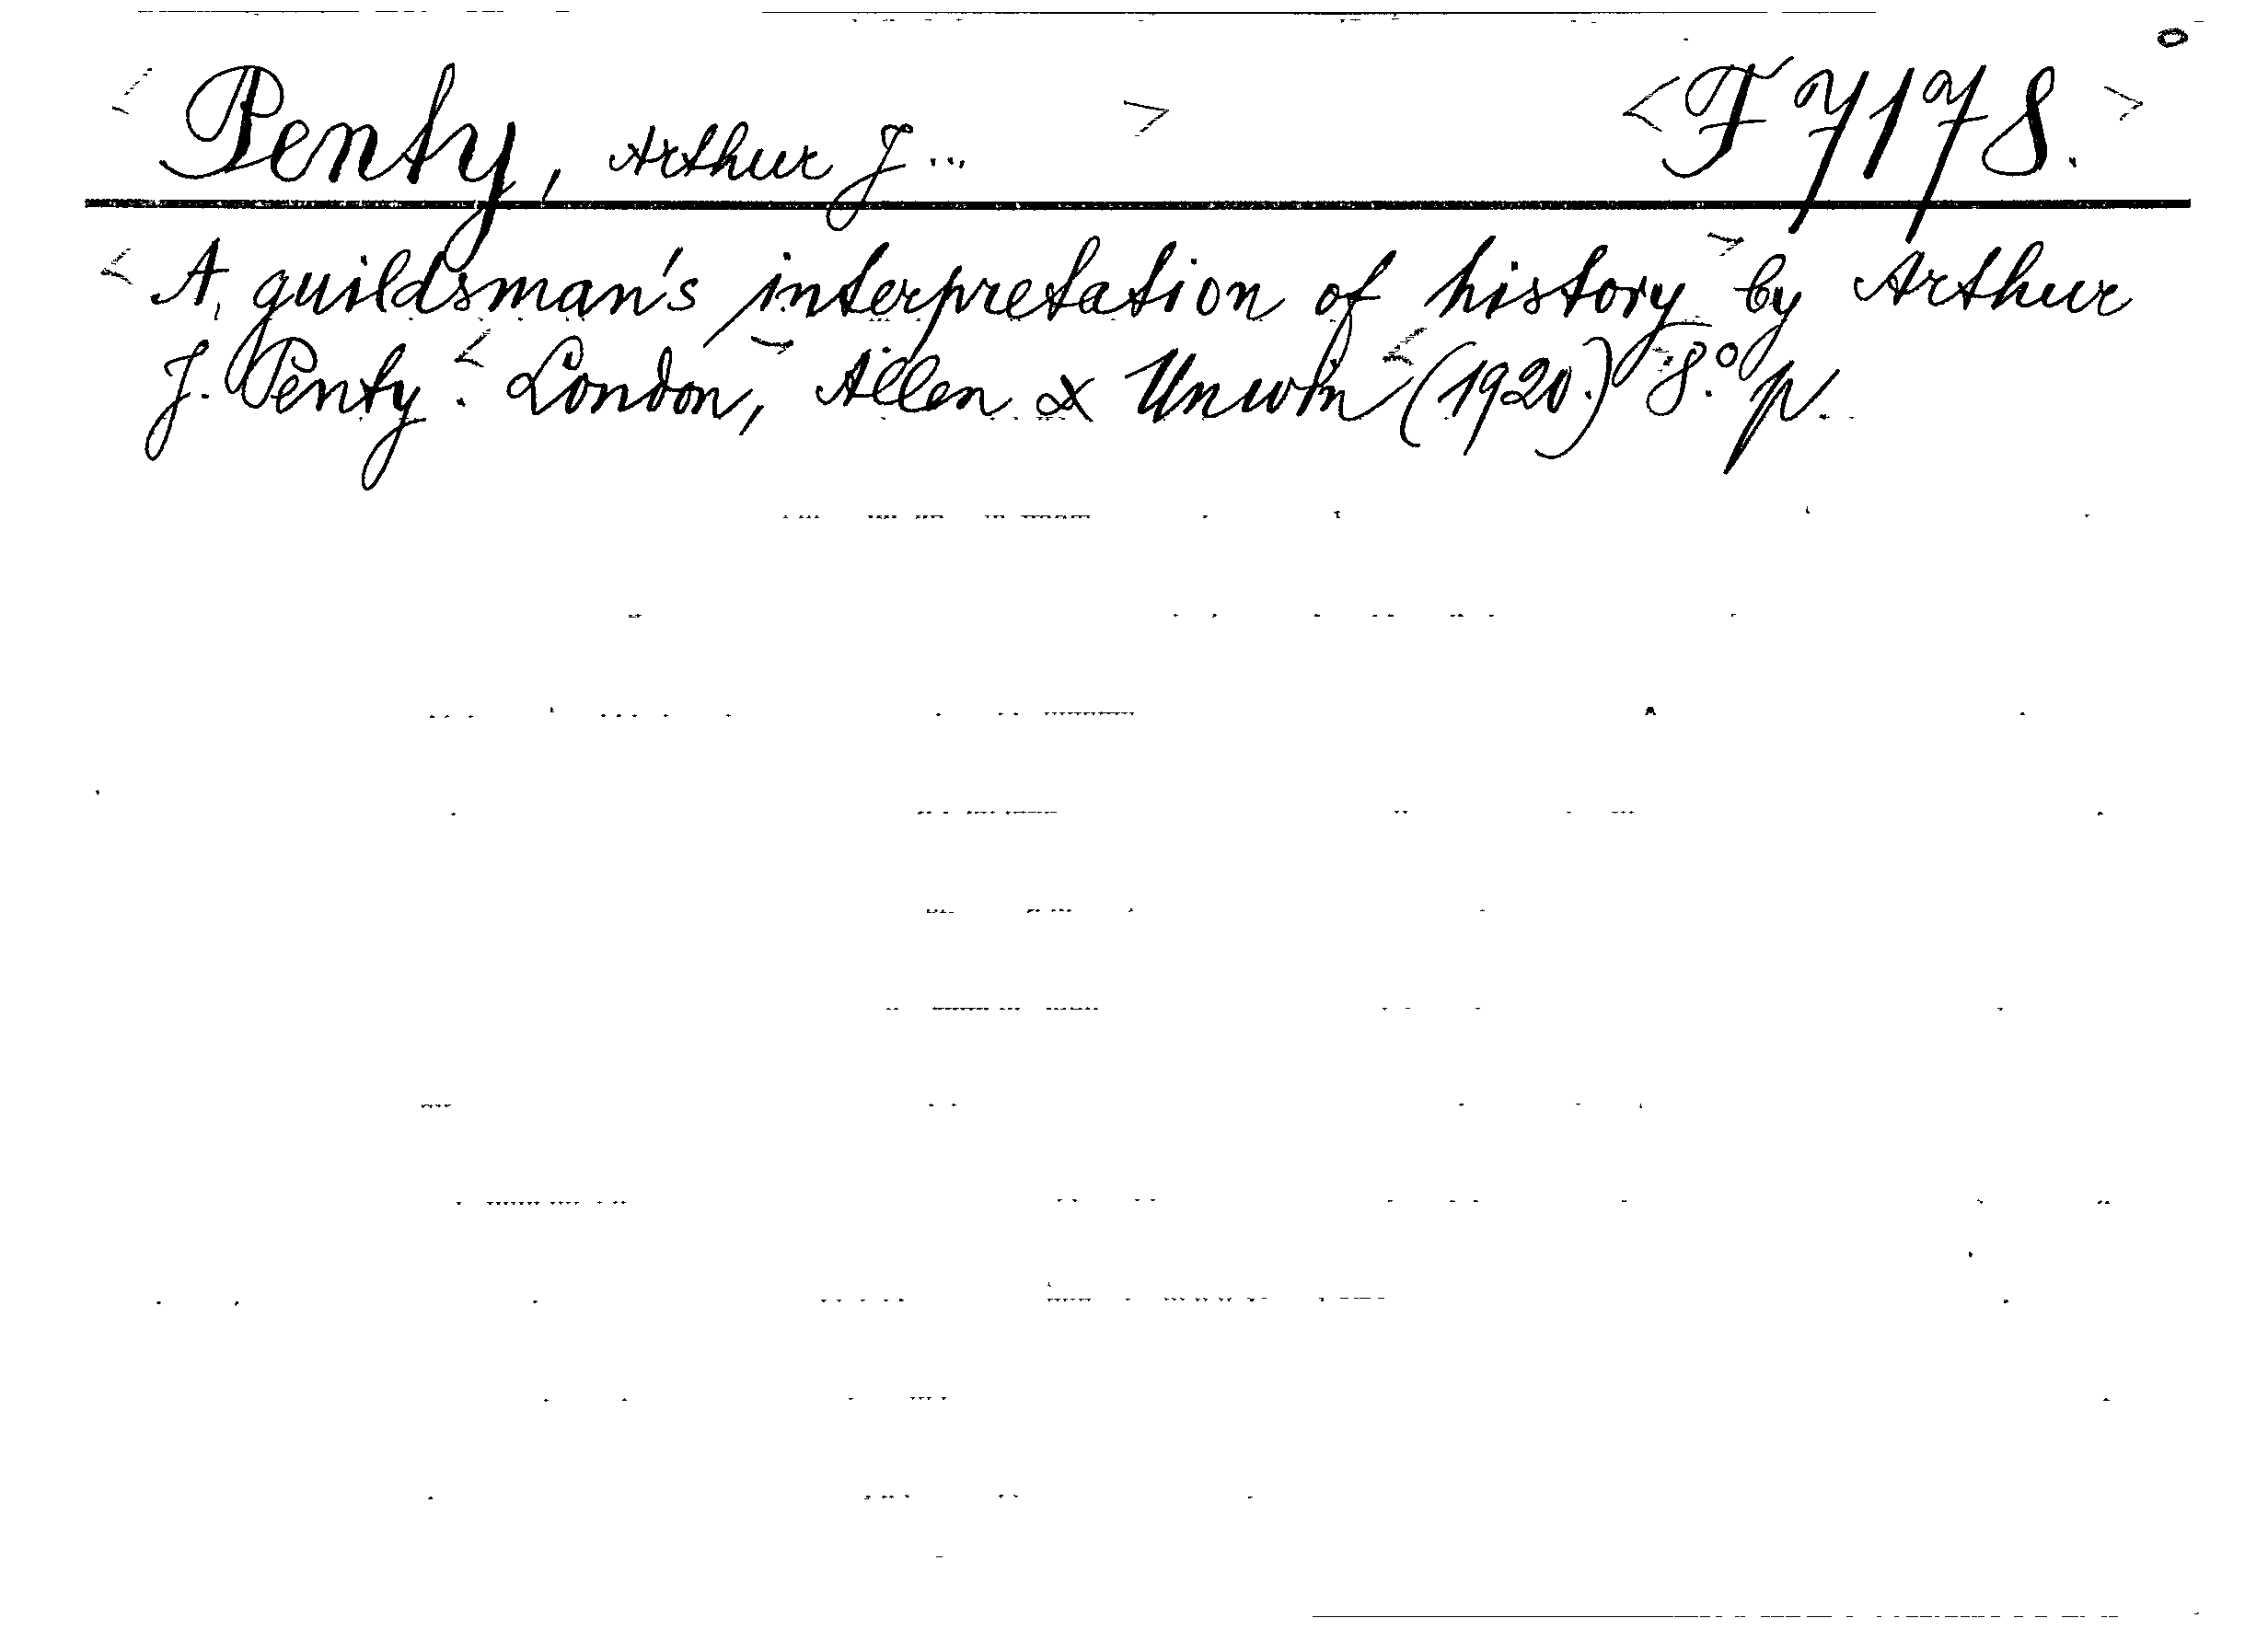 < Penty, Arthur J... > <F 7178.>
< A guildsman's interpretation of history > by Arthur
J. Penty. < London, > Allen & Unwin < (1920.) > 8.° p.